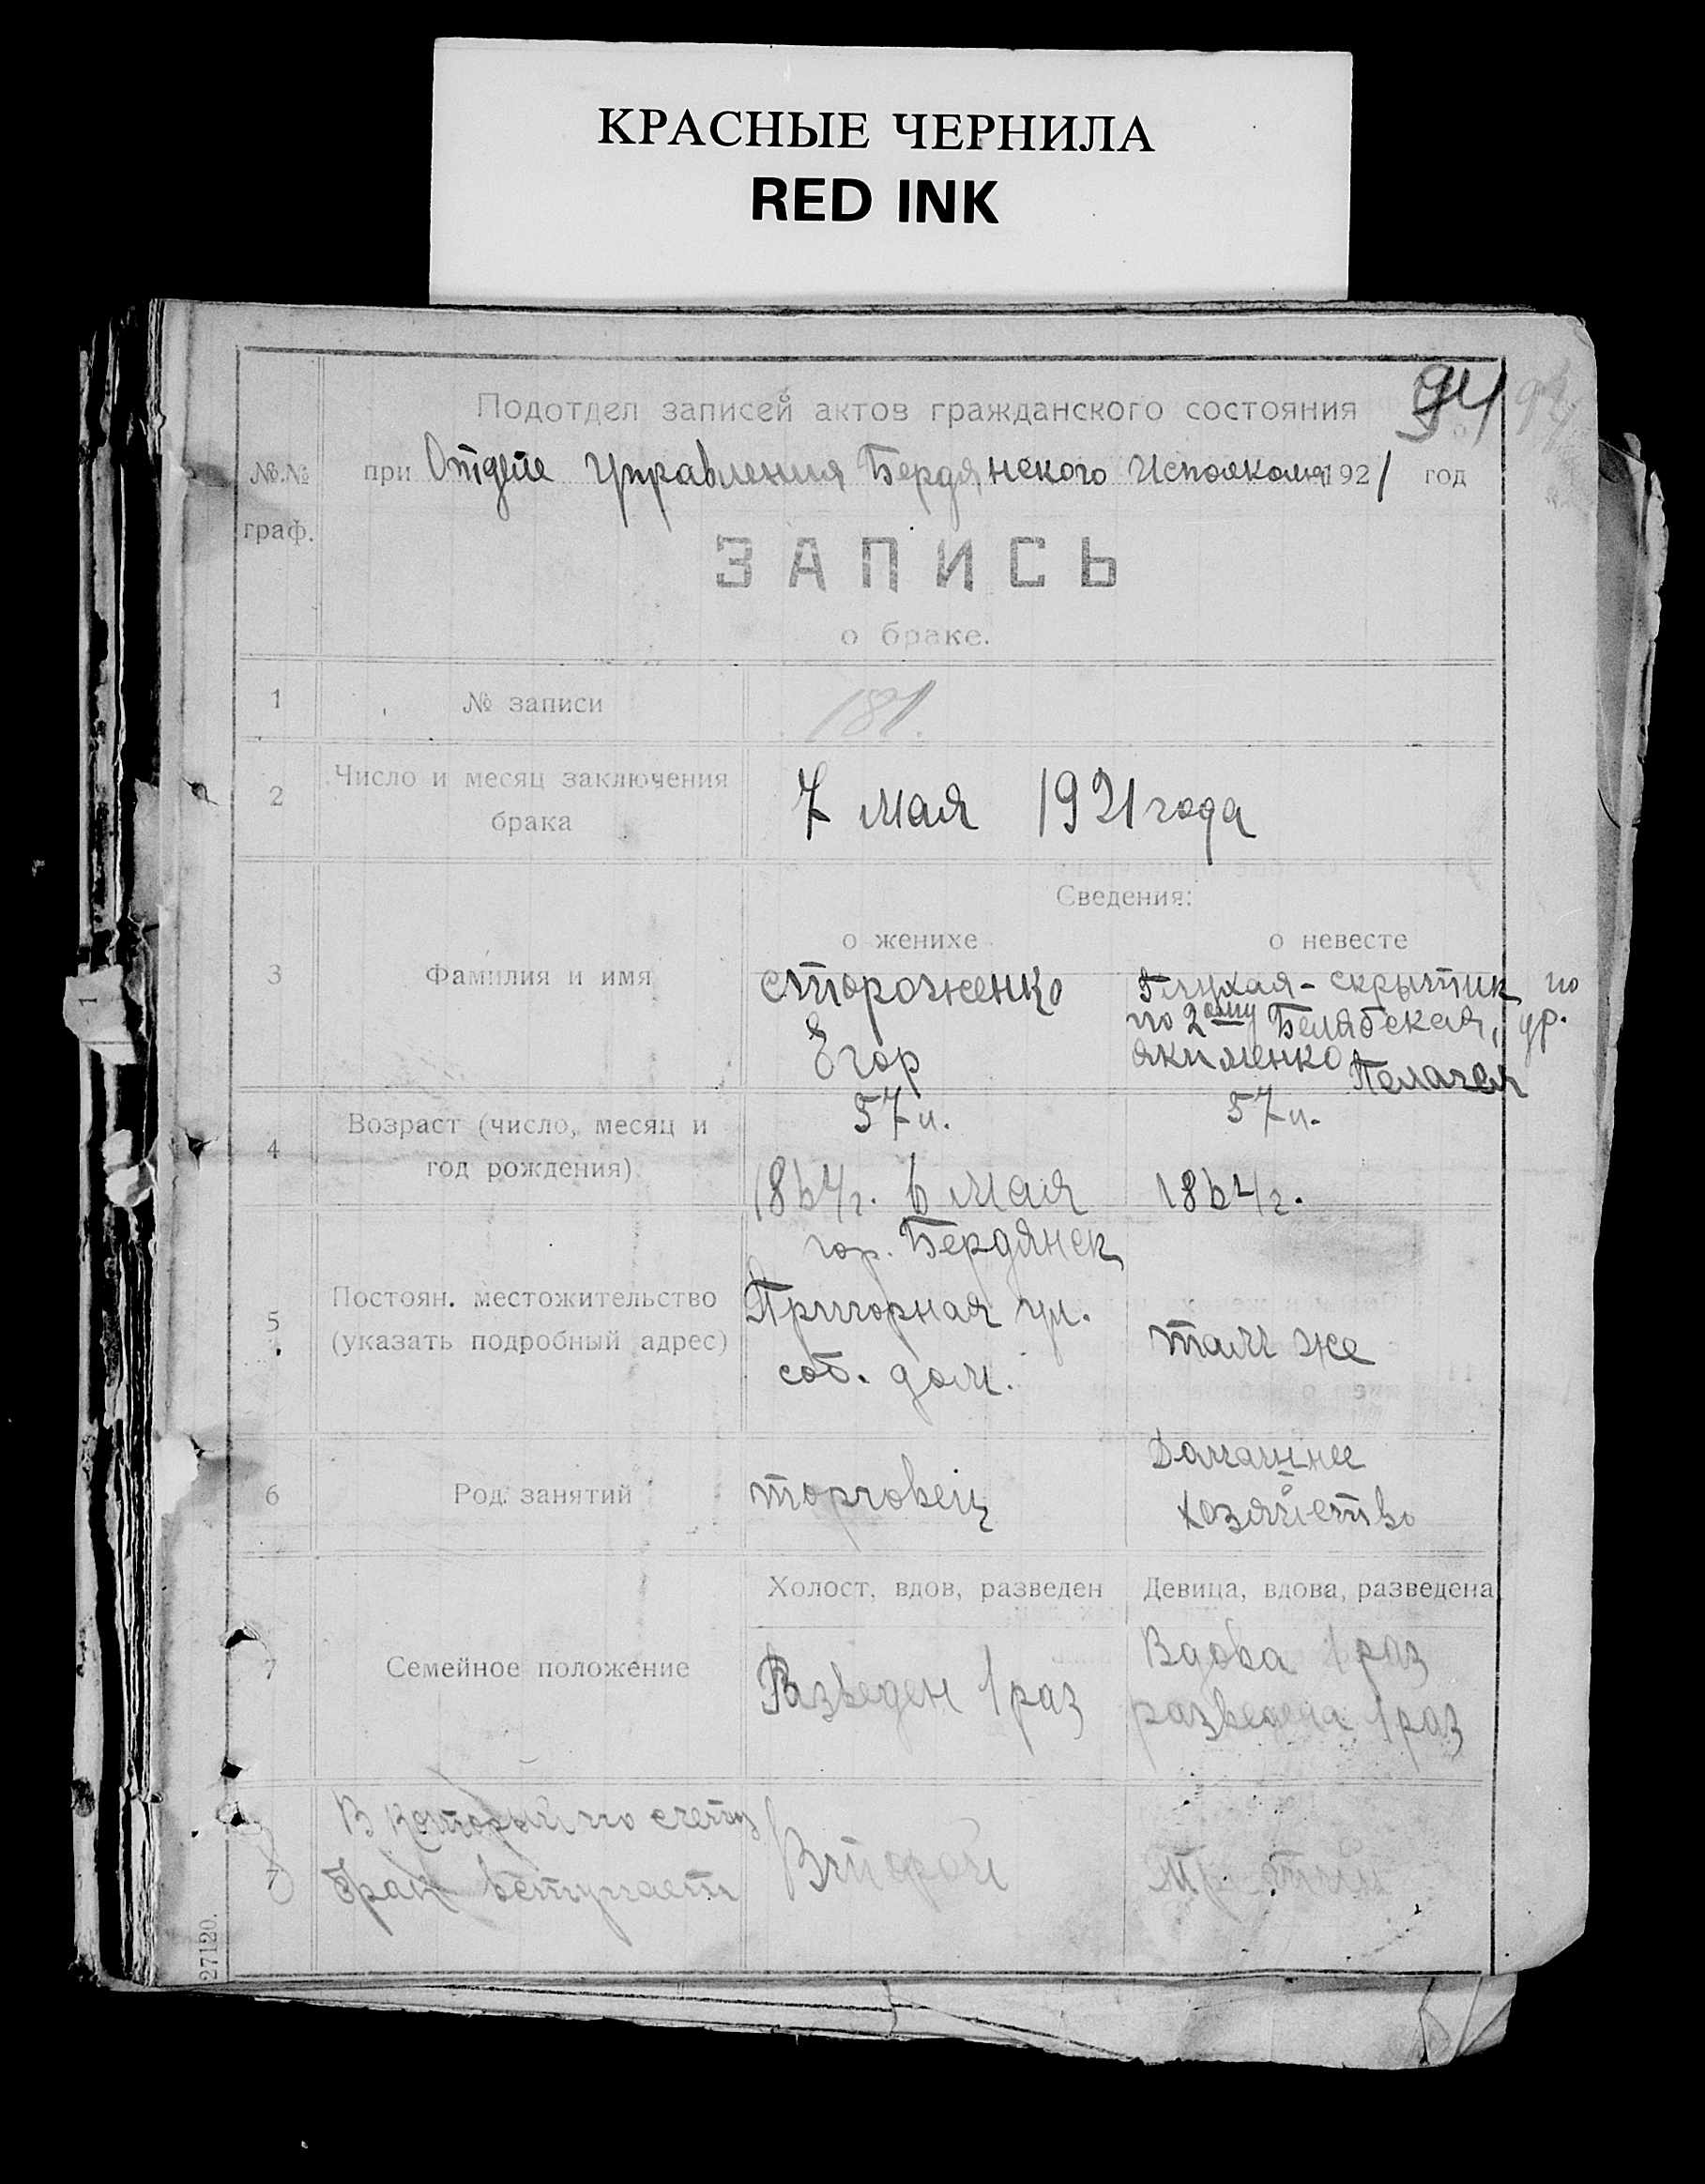 КРАСНЫЕ ЧЕРНИЛА
RED INK
94
Подотдел записей актов гражданского состояния
№.№ граф.
при Отделе Управления Бердянского Исполкома 1921 год
ЗАПИСЬ
о браке.
1 № записи 181.
2 Число и месяц заключения
брака
7 мая 1921 года
Сведения:
о женихе о невесте
3 Фамилия и имя
Стороженко
Егор
Глухая-Скрыпник по
по 2ому Белябская, ур.
Якименко Пелагея
4 Возраст (число, месяц и
год рождения)
57 л.
1864 г. 6 мая
57 л.
1864 г.
5 Постоян. местожительство
(указать подробный адрес)
гор. Бердянск
Пригорная ул.
соб. дом.
там же
6 Род занятий
торговец
Домашнее
хозяйство
Холост, вдов, разведен Девица, вдова, разведена
7 Семейное положение
Разведен 1 раз
Вдова 1 раз
разведена 1 раз
В который по счету
брак вступает
Второй
третий
27120.
1